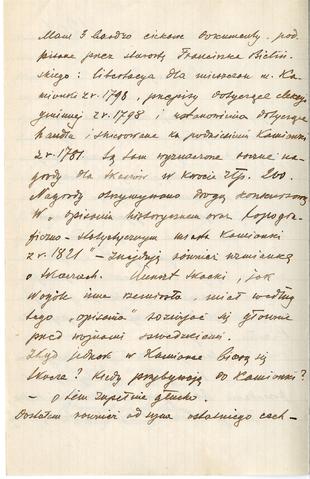 Mam 3 bardzo ciekawe dokumenty pod-
pisane przez starostę Franciszka Bieliń-
skiego: libertacja dla mieszczan m. Ka-
mionki z r. 1748, przepisy dotyczące
z r. 1748 i ustanowienia dotyczące
handlu i skierowane ku podniesieniu Kamionki
z r. 1751. Są tam wyznaczone roczne na-
grody dla tkaczów w kwocie złp. 200.
Nagrody otrzymywano drogą konkursową
W „opisaniu historycznem oraz topogra-
ficzno-statystycznym miasta Kamionki
z r. 1821" – znajduję również wzmiankę
o tkaczach. Kunszt tkacki, jak
wogóle inne rzemiosła, miał według
tego „opisania" rozwijać się głównie
przed wojnami szwedzkiemi.
Skąd jednak w Kamionce biorą się
tkacze? Kiedy przybywają do Kamionki?
– o tem zupełnie głucho.
Dostałem również od syna ostatniego cech-